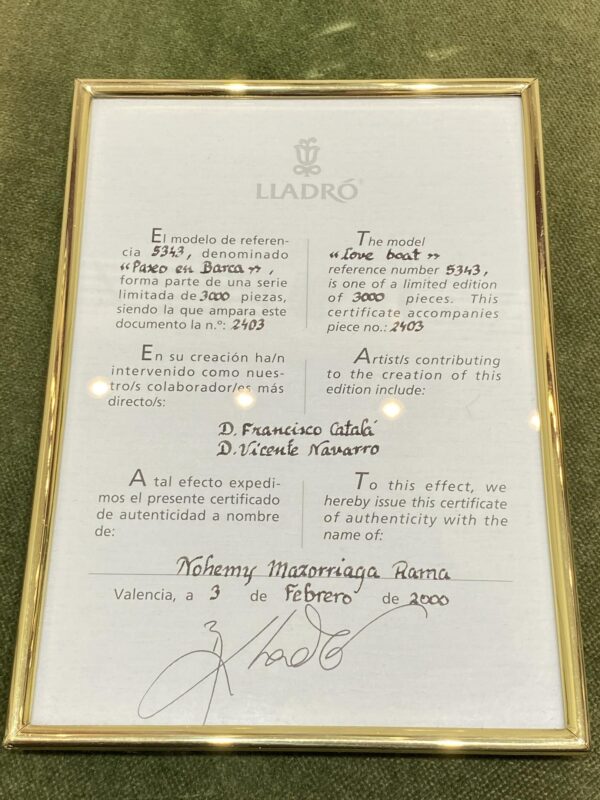 LLADRÓ
El modelo de referen-
cia 5343, denominado
"Paseo en Barca",
forma parte de una serie
limitada de 3000 piezas,
siendo la que ampara este
documento la n.º: 2403
The model
"Love boat"
reference number 5343,
is one of a limited edition
of 3000 pieces. This
certificate accompanies
piece no.: 2403
En su creación ha/n
intervenido como nues-
tro/s colaborador/es más
directo/s:
Artist/s contributing
to the creation of this
edition include:
D. Francisco Catalá
D. Vicente Navarro
A tal efecto expedi-
mos el presente certificado
de autenticidad a nombre
de:
To this effect, we
hereby issue this certificate
of authenticity with the
name of:
Nohemy Mazorriaga Rama
Valencia, a 3 de Febrero de 2000
Lladró